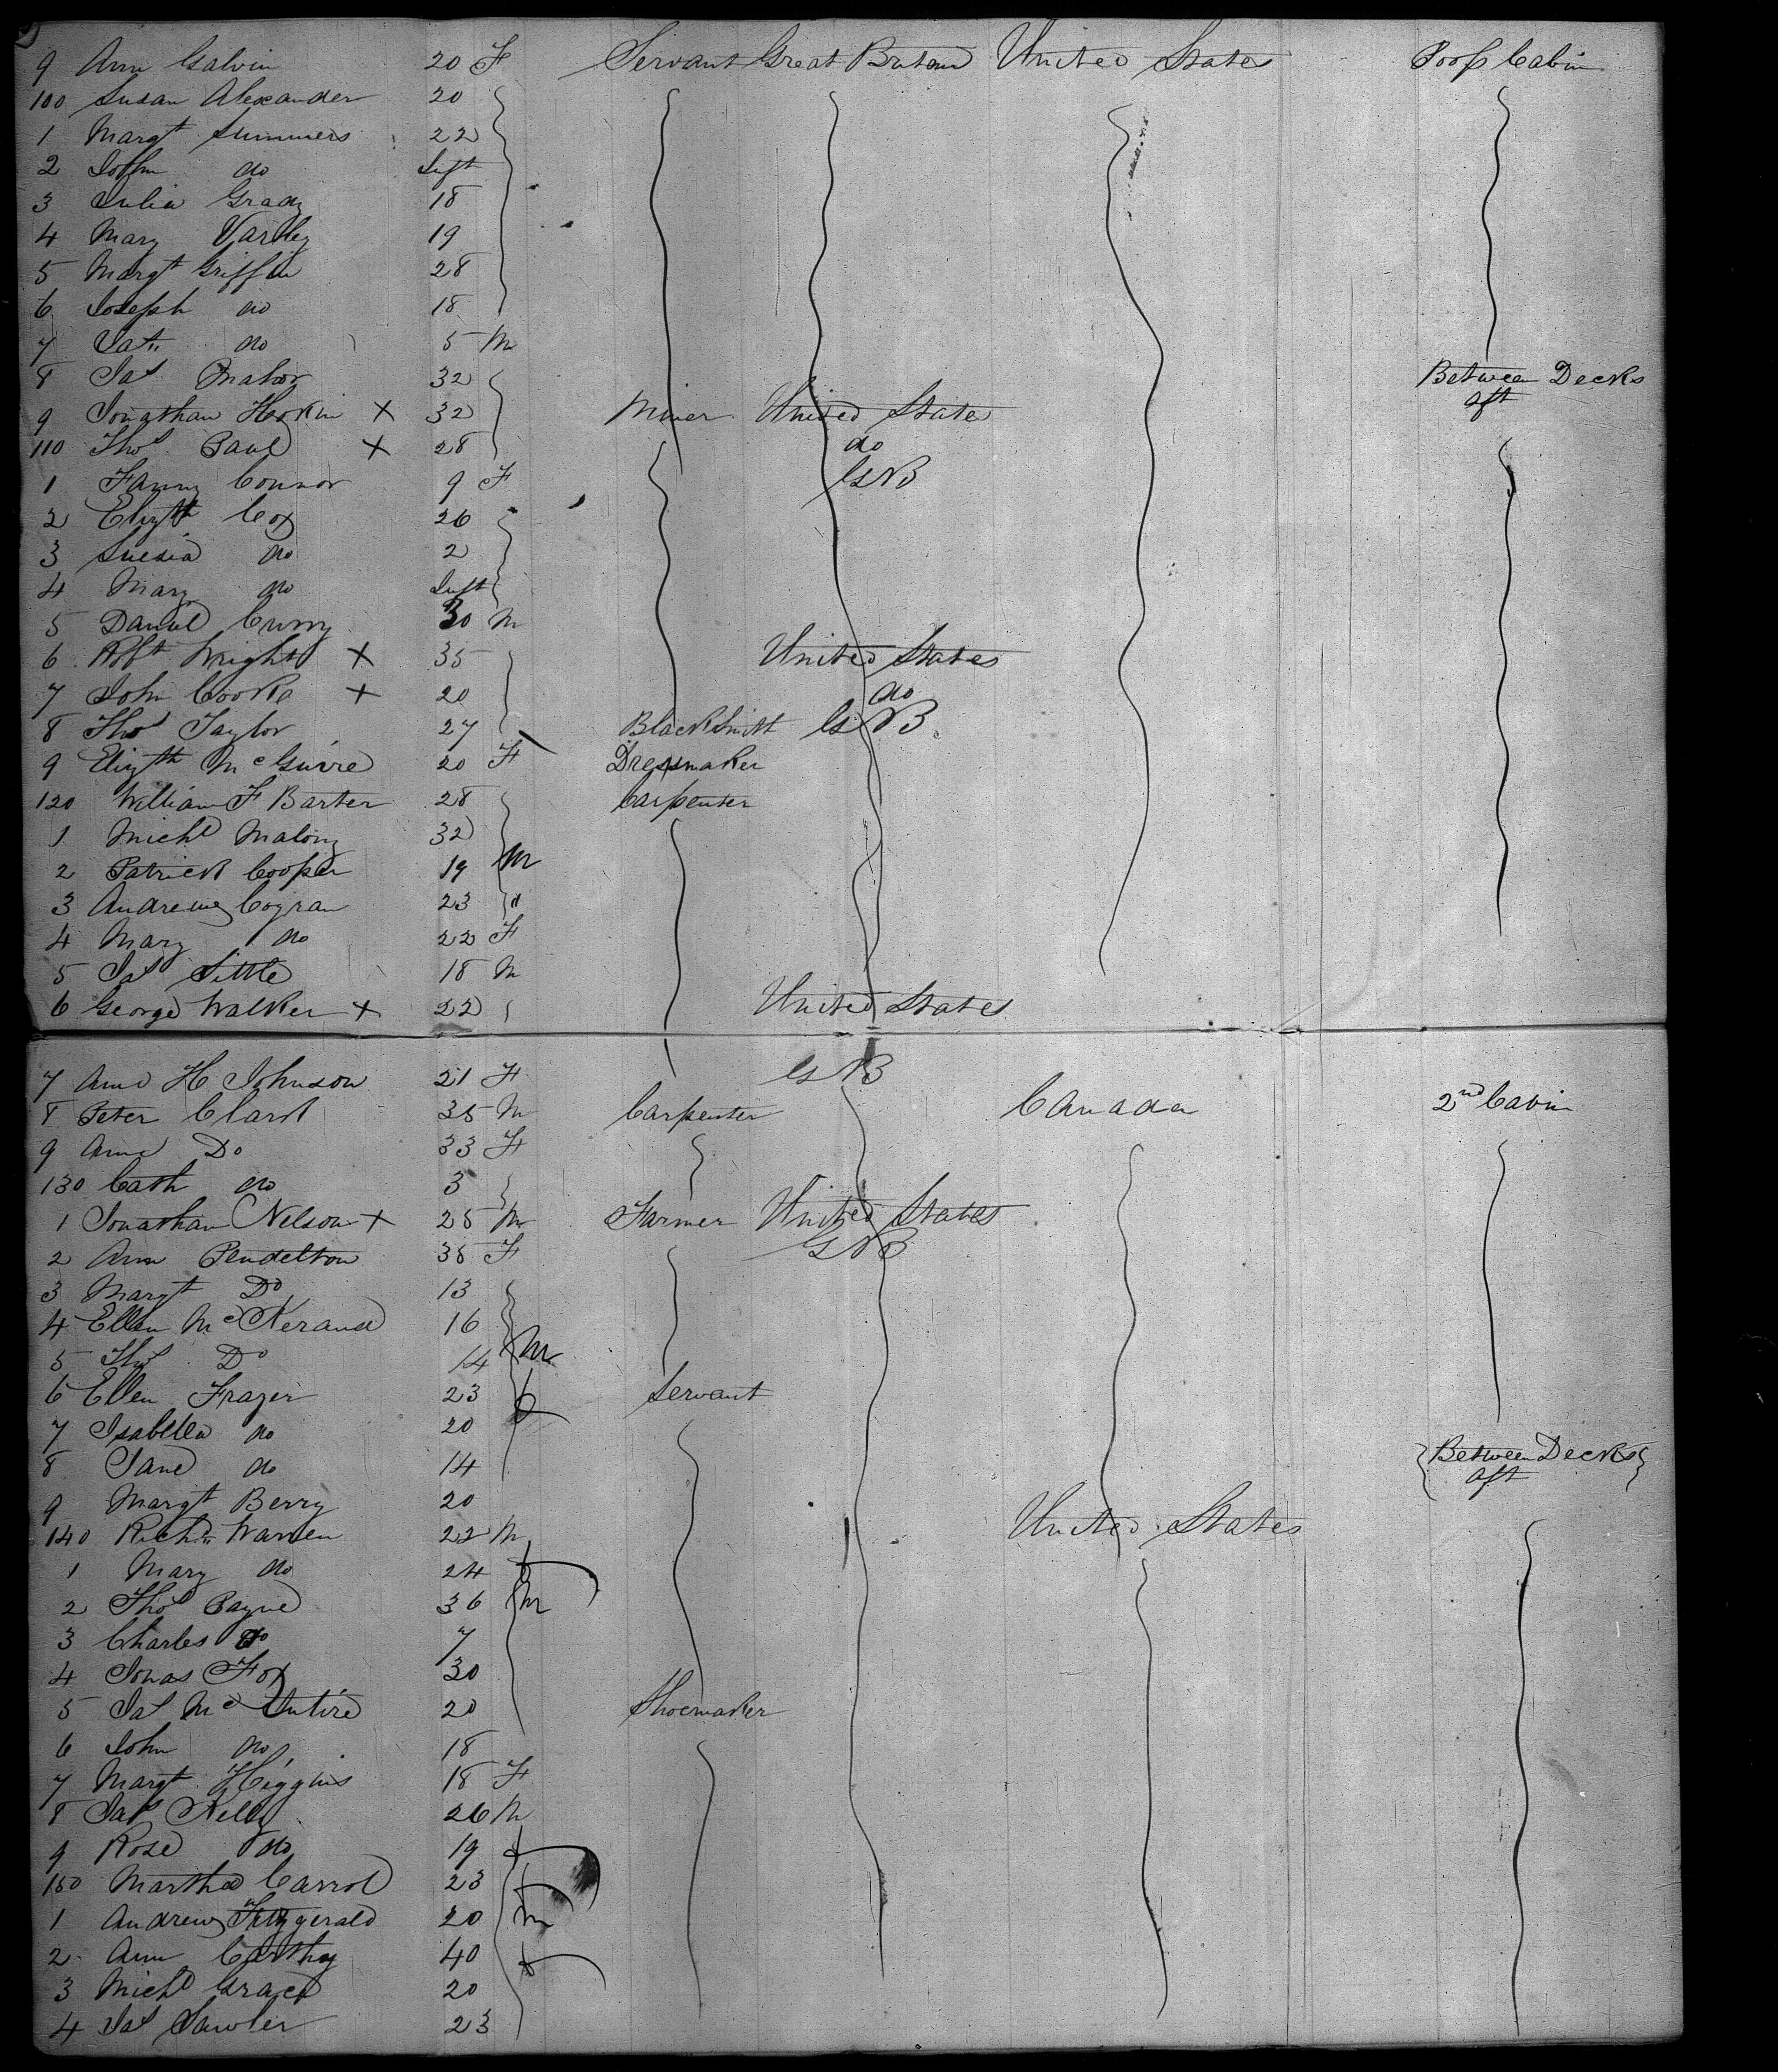 9 Ann Galvin 20 F Servant Great Britain United States Poop Cabin
100 Susan Alexander 20
1 Margt Summers 22
2 John do Inft
3 Julia Grady 18
4 Mary Vartley 19
5 Margt Griffin 28
6 Joseph do 18
7 Pat do 5 M
8 Jas Mahor 32 Between Decks
9 Jonathan Hoskin X 32 Miner United States aft
110 Thos Paul X 28 do
1 Fanny Connor 9 F G B
2 Elizth Cox 26
3 Luesia do 2
4 Mary do Inft
5 Daniel Curry 30 M
6 Robt Wright X 35 United States
7 John Cooke X 20 do
8 Thos Taylor 27 Blacksmith G B
9 Elizth McGuire 20 F Dressmaker
120 William F Barter 28 Carpenter
1 Michl Malony 32
2 Patrick Cooper 19 M
3 Andrew Cogran 23 "
4 Mary do 22 F
5 Jas Little 18 M
6 George Walker X 22 United States
7 Ann H Johnson 21 F G B
8 Peter Clark 35 M Carpenter Canada 2nd Cabin
9 Ann Do 33 F
130 Cath do 3
1 Jonathan Nelson X 25 M Farmer United States
2 Ann Pendelton 38 F G B
3 Margt Do 13
4 Ellen Mc 16
5 Thos Do 14 M
6 Ellen Frazer 23 Servant
7 Isabella do 20
8 Jane do 14 Between Decks
9 Margt Berry 20 aft
140 Richd Warren 22 M United States
1 Mary do 24 F
2 Thos Payne 36 M
3 Charles do 7
4 Jonas Fox 30
5 Jas McIntire 20 Shoemaker
6 John do 18
7 Margt Higgins 18 F
8 Jas Kelly 26 M
9 Rose do 19 F
150 Martha Carrol 23
1 Andrew Fitzgerald 20 M
2 Ann Carthy 40 F
3 Michl Grace 20
4 Jas Lawler 23